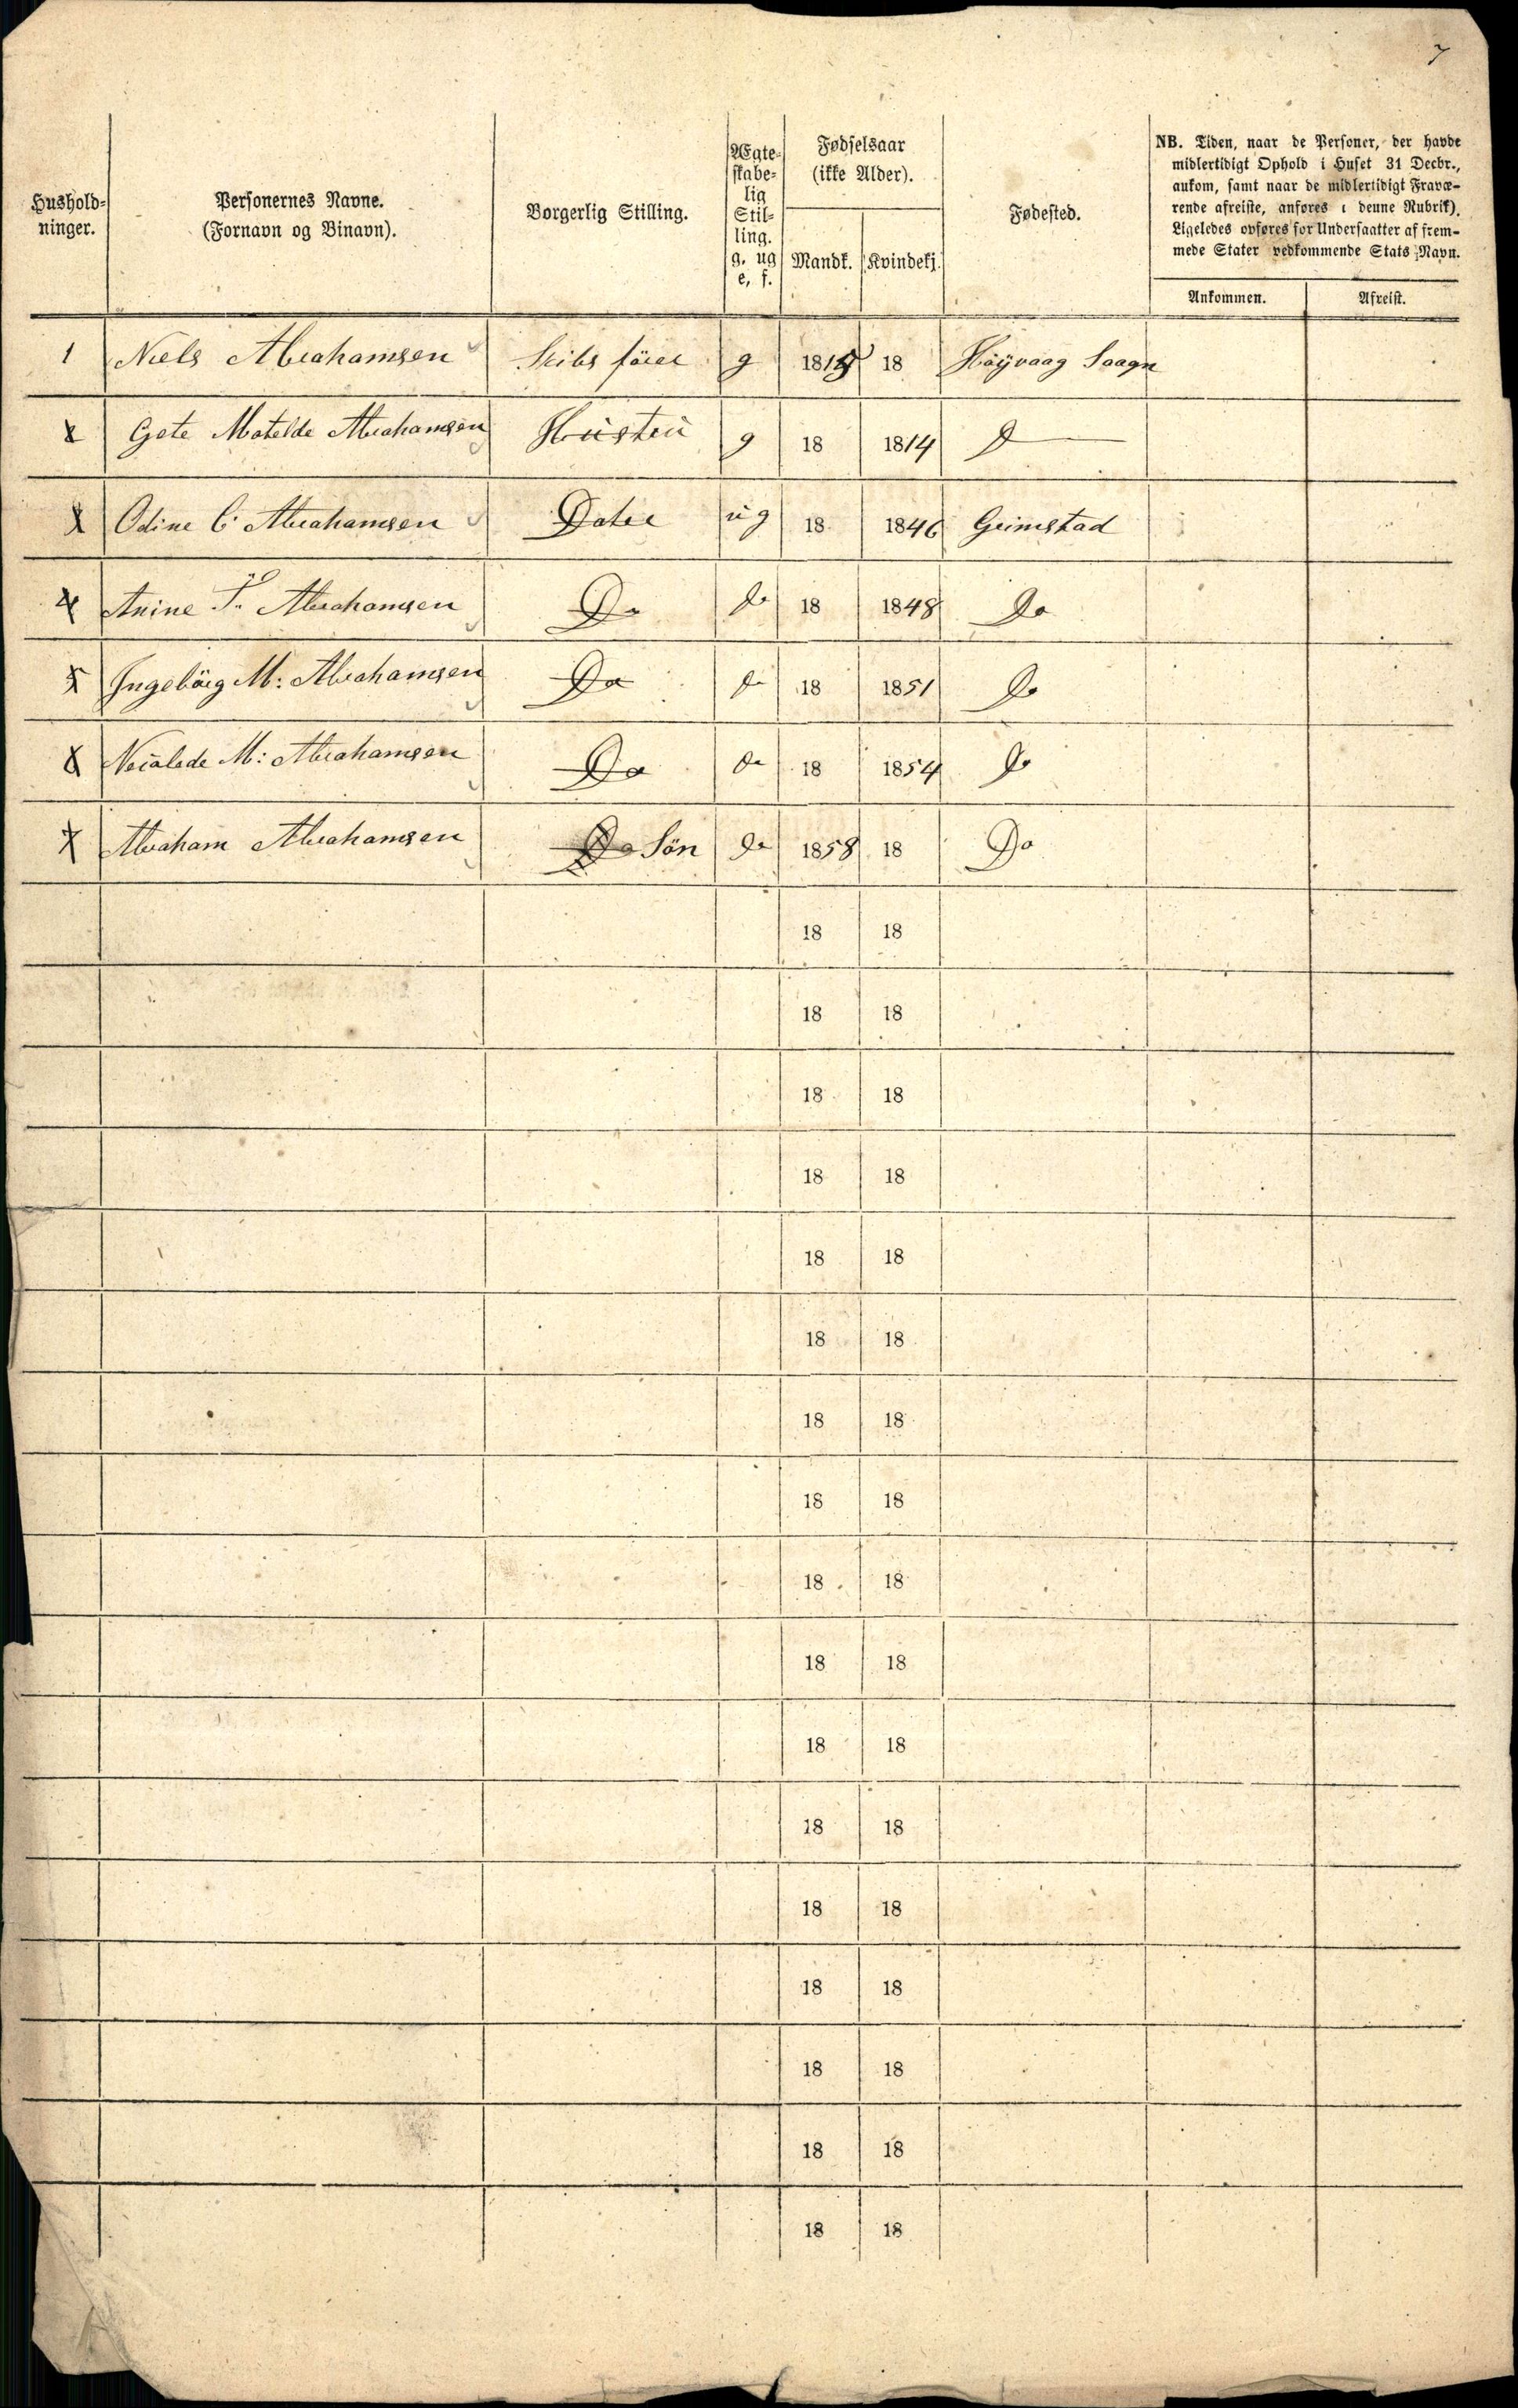 7
Hushold-
ninger.
Personernes Navne.
(Fornavn og Binavn).
Borgerlig Stilling.
Ægte-
skabe-
lig
Stil-
ling.
g. ug
e, f.
Fødselsaar
(ikke Alder).
Mandk. Kvindekj.
Fødested.
NB. Tiden, naar de Personer, der havde
midlertidigt Ophold i Huset 31 Decbr.,
ankom, samt naar de midlertidigt Fravæ-
rende afreiste, anføres i denne Rubrik).
Ligeledes opføres for Undersaatter af frem-
mede Stater vedkommende Stats Navn.
Ankommen. Afreist.
1 Niels Abrahamsen Skibs förer g 1815 18 Höÿvaag Saagn
Gete Matelde Abrahamsen Hüstrü g 18 1814 D
Odine C. Abrahamsen Dater üg 18 1846 Grimstad
4 Anine T. Abrahamsen Do do 18 1848 Do
5 Ingebörg M: Abrahamsen Do do 18 1851 Do
6 M: Abrahamsen Do do 18 1854 Do
7 Abraham Abrahamsen Do Sön do 1858 18 Do
18 18
18 18
18 18
18 18
18 18
18 18
18 18
18 18
18 18
18 18
18 18
18 18
18 18
18 18
18 18
18 18
18 18